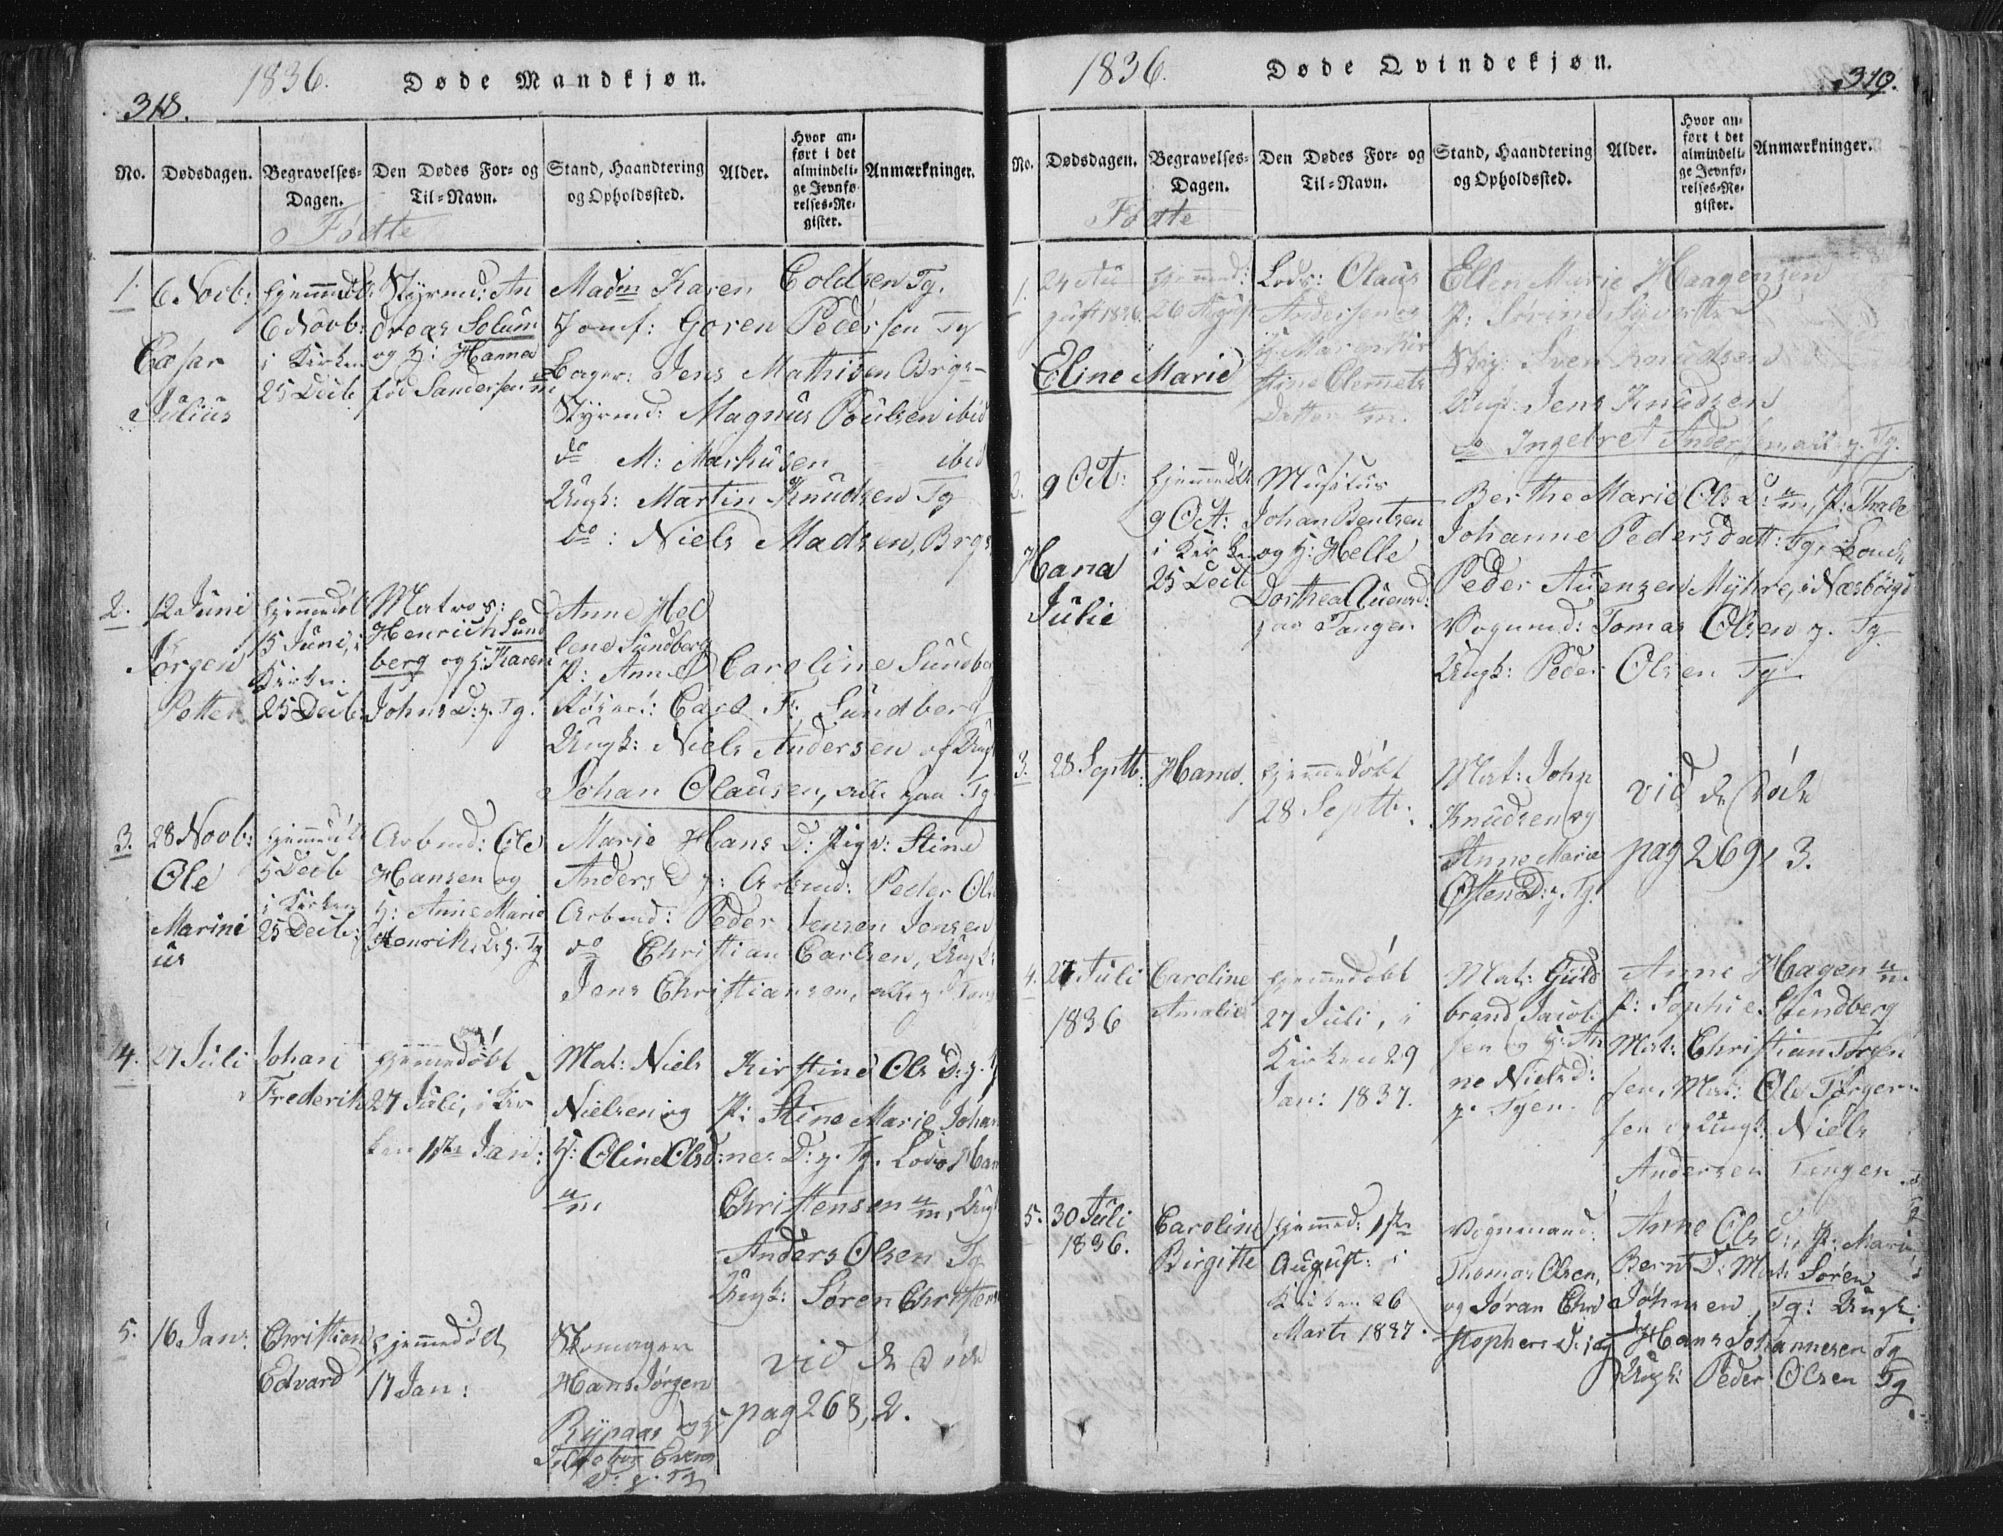 318.
1836.
Døde Mandkjøn.
No. Dødsdagen. Begravelses-Dagen. Den Dødes For- og Til-Navn. Stand, Haandtering og Opholdssted. Alder. Hvor anført i det almindelige Jevnførelses-Register. Anmærkninger.
Fødte
1. 6 Novb:
Cæsar
Julius
hjemmedøbt
6 Novb:
i Kirken
25 Decb
Styrmd: An
dreas Solum
og H: Hanna
fød Sandersen
Madm Karen Coldsen Tg.
Jomf: Goren Pedersen Tg
Jens Mathisen Brgs
Styrmd: Magnus Poulsen ibid
do M: Markusen ibid
Ungk: Martin Knudsen Tg
do: Niels Madsen, Brgs
2. 12 Juni
Jørgen
Petter
hjemmedøbt
15 Juni, i
Kirken
25 Decb:
Matros:
Henrich Sund
berg og H: Karen
Johns D: p. Tg.
Anne Hel
lene Sundberg
P: Anne Caroline Sundberg
Carl F: Sundberg
Ungk: Niels Andersen og Ungk
Johan Olausen, alle paa Tg
3. 28 Novb:
Ole
Marini
us
hjemmedøbt
5 Decb
i Kirken
25 Decb:
Arbmd: Ole
Hansen og
H: Anne Marie
Henriks D: p. Tg
Marie Hans D: Pige: Stine
Anders D p: Arbmd: Peder Ols
Arbmd: Peder Jensen Jensen
do Christian Carlsen, Ungk:
Jens Christiansen, alle p. Tang
4. 27 Juli
Johan
Frederik
hjemmedøbt
27 Juli, i Kir
ken 1ste Jan:
Mat: Niels
Nielsen og
H: Oline Olsd:
Kirstine Ols D: p.
P: Stine Marie Johan
nes D: p. Tg. Lods Han
Christensen, Ungk
Anders Olsen Tg
Ungk: Søren Christens
5. 16 Jan:
Christian
Edvard
hjemmedøbt
17 Jan:
Skomager
Hans Jørgen
Rypaas og H:
D: p. Tg
vid de Døde
pag 268, 2.
1836.
Døde Qvindekjøn.
319.
No. Dødsdagen. Begravelses-Dagen. Den Dødes For- og Til-Navn. Stand, Haandtering og Opholdssted. Alder. Hvor anført i det almindelige Jevnførelses-Register. Anmærkninger.
Fødte
1. 24 Au
gust 1836
Eline Marie
hjemmed:
26 August
Lods: Olaus
Andersen og
H: Maren Kir
stine Clemets
Datter
Ellen Marie Haagensen
P: Sorine Syverts D
Iver Knudsen
Ungk: Jens Knudsen
do Ingebret Andersen, all p. Tg.
2. 9 Oct:
Hana
Julie
hjemmedøbt
9 Oct:
i Kirken
25 Decb
Musicus
Johan Bentsen
og H: Helle
Dorthea Auensd:
paa Tangen
Berthe Marie Ols D:, P:
Johanne Pedersdatt: Tg,
Peder Auensen Myhre, i Næsbøigd
Vognmd: Tomas Olsen p. Tg
Ungk: Peder Olsen Tg
3. 28 Septb:
Hana
hjemmedøbt
28 Septb:
Mat: John
Knudsen og
Anne Marie
Osten D: p. Tg:
vid de Døde
pag 269, 3.
4. 27 Juli
1836
Caroline
Amalie
hjemmedøbt
27 Juli, i
Kirken 29
Jan: 1837.
Mat: Guld
brand Jacob
sen og H: An
ne Nielsd:
p. Tgen.
Anne Hagen
P: Sophie Sundberg
Mat: Christian Torgen
sen, Mat: Ole Torger
sen og Ungk: Niels
Andersen Tangen
5. 30 Juli
1836.
Caroline
Birgitte
hjemmed: 1ste
August: i
Kirken 26
Marts 1837.
Vognmand:
Thomas Olsen,
og Jøran Chri
stophers D:
Anne Ols D:, P: Marie
Bernt D: Mat: Søren
Johnsen, Tg: Ungk:
Hans Johannesen Tg
Ungk: Peder Olsen Tg